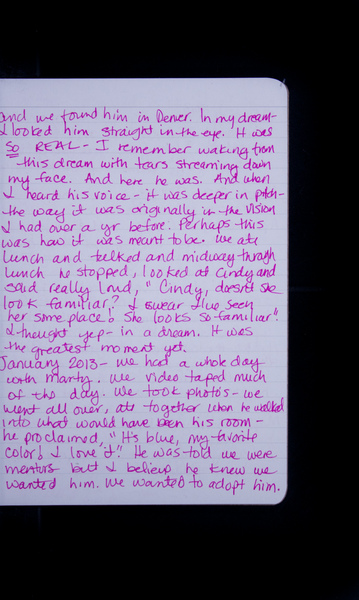 and we found him in Denver. In my dream-
I looked him straight in the eye. It was
SO REAL - I remember waking from
this dream with tears streaming down
my face. And here he was. And when
I heard his voice - it was deeper in pitch -
the way it was originally in the vision
I had over a yr before. Perhaps this
was how it was meant to be. We ate
lunch and talked and midway through
lunch he stopped, looked at Cindy and
said really loud, "Cindy, doesn't she
look familiar? I swear I've seen
her some place! She looks so familiar."
I thought yep - in a dream. It was
the greatest moment yet.
January 2013 - we had a whole day
with Marty. We video taped much
of the day. We took photo's - we
went all over, ate together when he walked
into what would have been his room -
he proclaimed, "It's blue, my favorite
color! I love it"! He was told we were
mentors but I believe he knew we
wanted him. We wanted to adopt him.